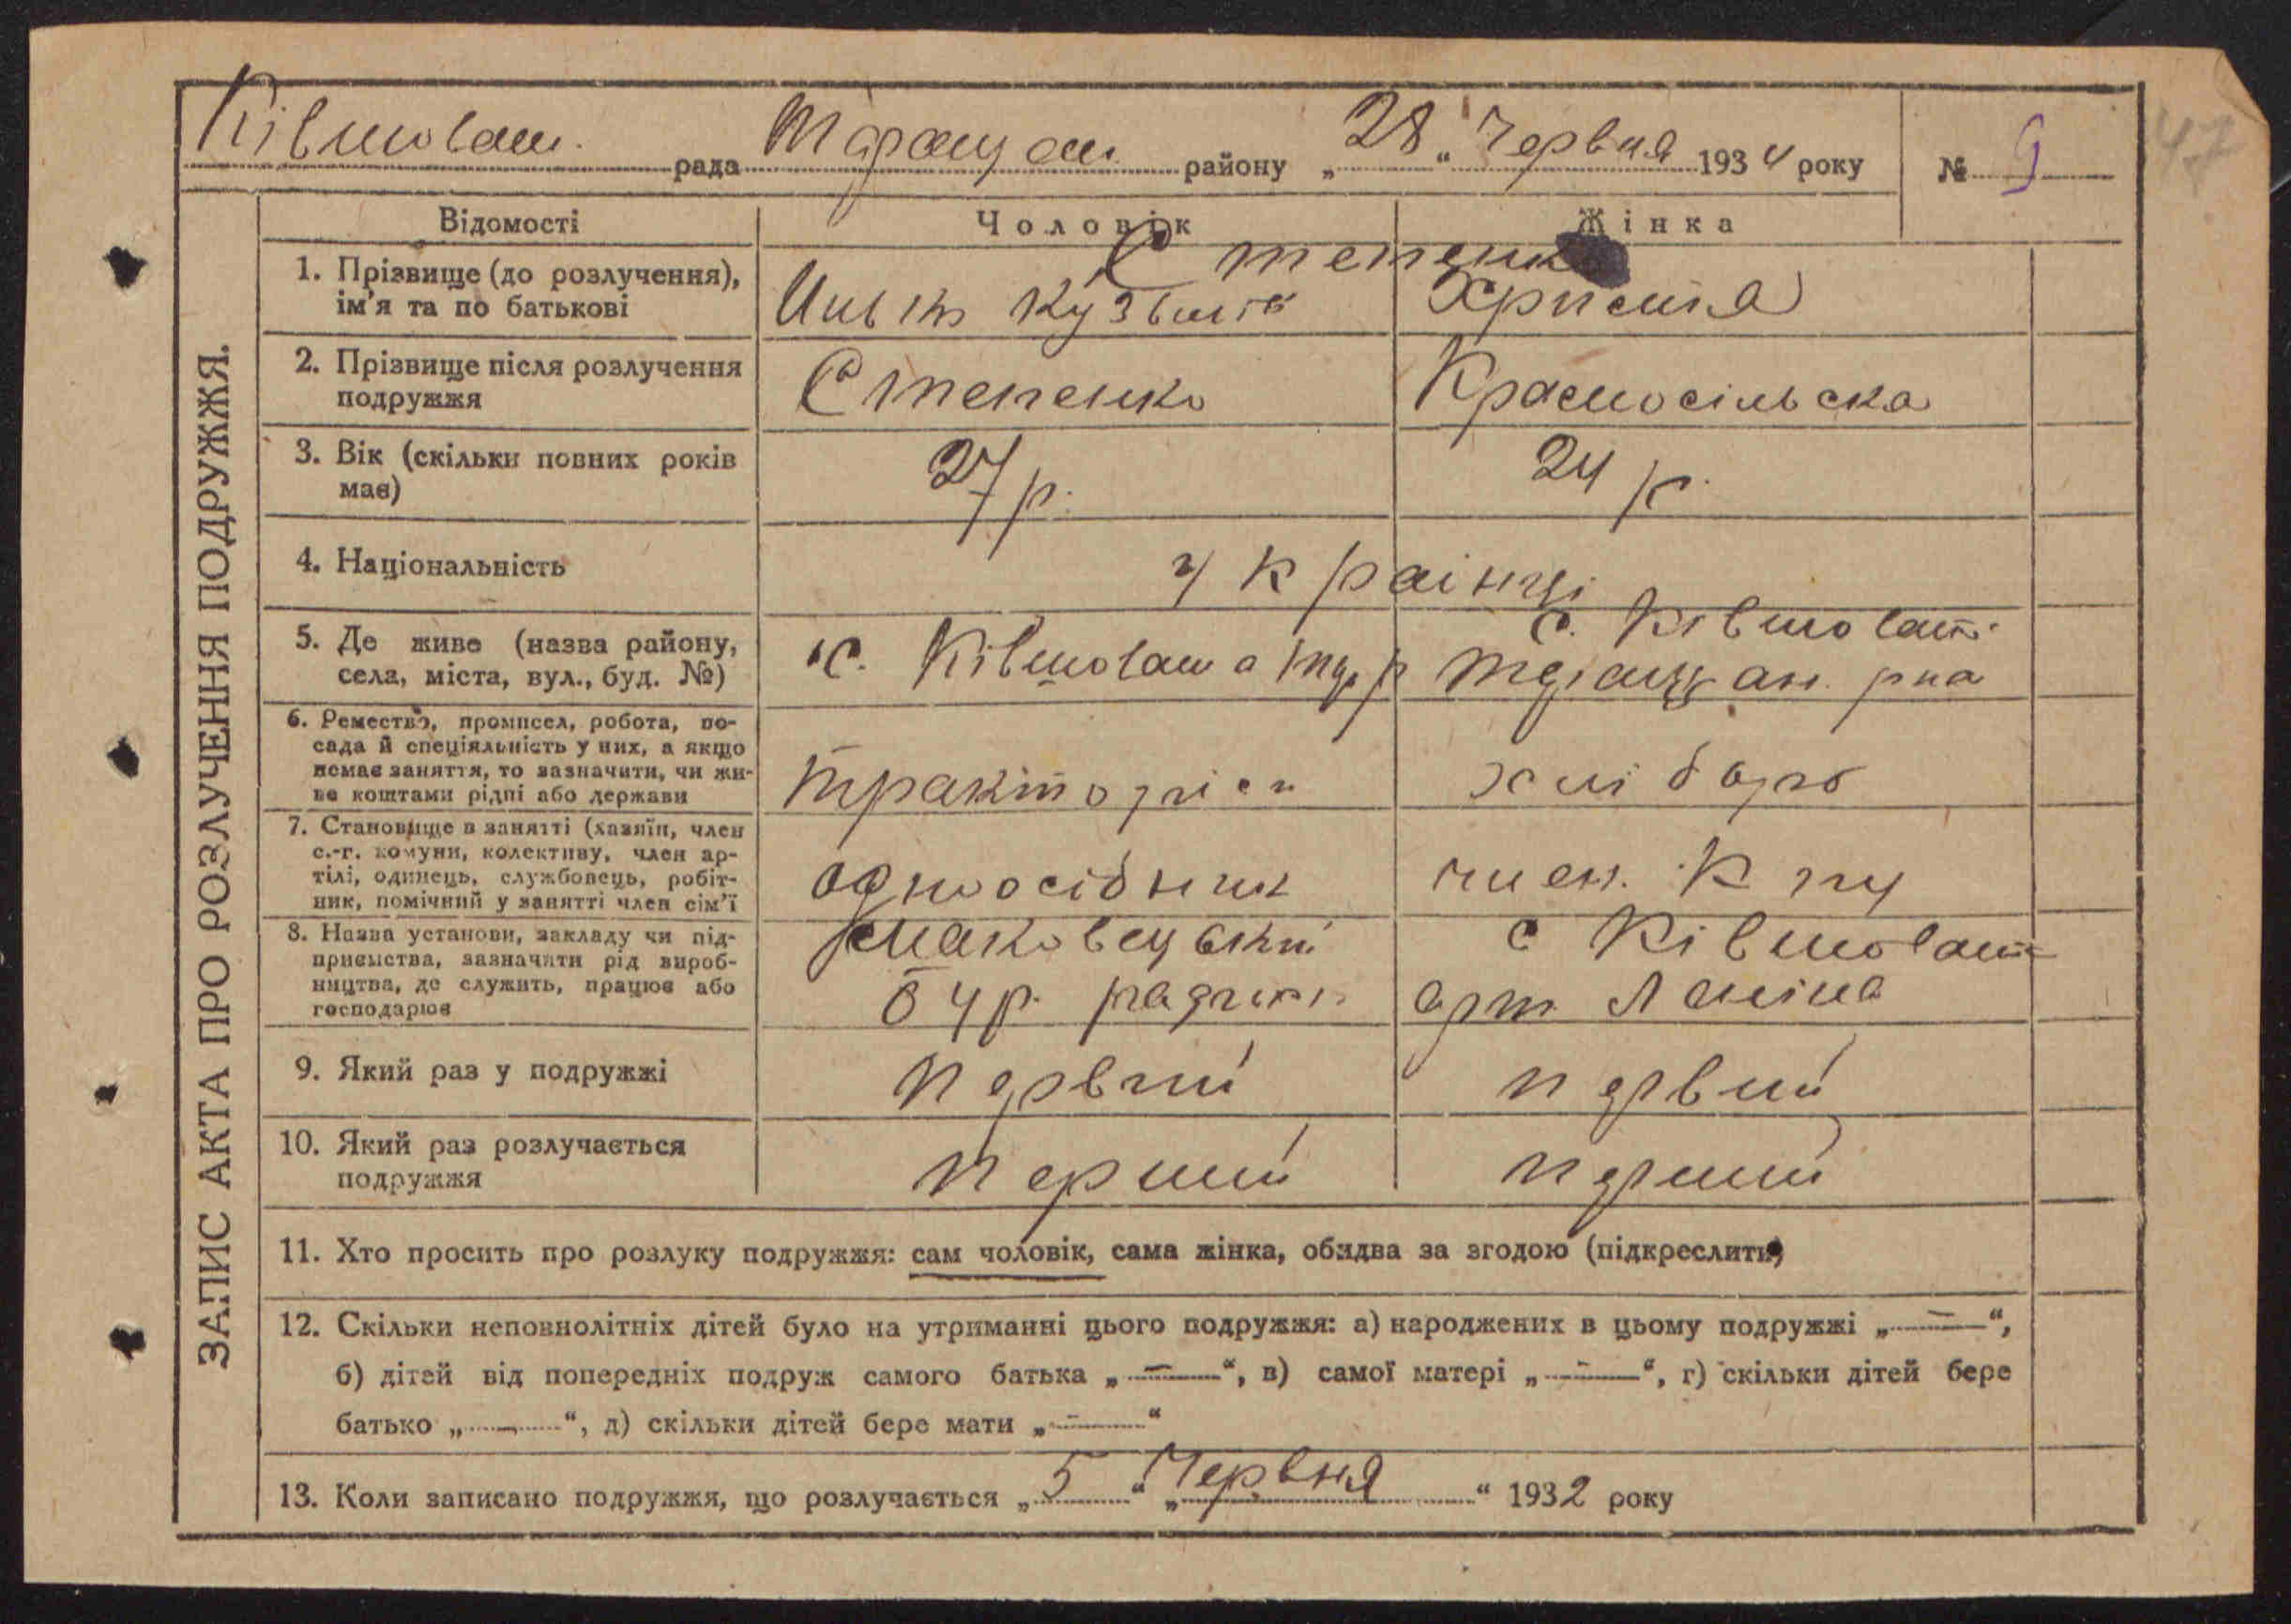 Ківшоват. рада Таращан. району „28“ Червня 1934 року № 9
47
ЗАПИС АКТА ПРО РОЗЛУЧЕННЯ ПОДРУЖЖЯ.
Відомості Чоловік Жінка
1. Прізвище (до розлучення), ім'я та по батькові
Степенко
Кузьмів Христя
2. Прізвище після розлучення подружжя
Степенко Красносільска
3. Вік (скільки повних років має)
27 р. 24 р.
4. Національність
українці
5. Де живе (назва району, села, міста, вул., буд. №)
с. Ківшовата с. Ківшоват.
Таращан. р на
6. Ремество, промисел, робота, посада й спеціяльність у них, а якщо
немає заняття, то зазначити, чи живе коштами рідні або держави
тракторіст хлібороб
7. Становище в занятті (хазяїн, член
с.-г. комуни, колективу, член артілі, одинець, службовець, робітник, помічний у занятті член сім'ї
одноосібник член. К гу
8. Назва установи, закладу чи підприємства, зазначити рід виробництва, де служить, працює або
господарює
с Ківшоват
арт Леніна
9. Який раз у подружжі
первий первий
10. Який раз розлучається подружжя
перший перший
11. Хто просить про розлуку подружжя: сам чоловік, сама жінка, обидва за згодою (підкреслити)
12. Скільки неповнолітніх дітей було на утриманні цього подружжя: а) народжених в цьому подружжі „—“,
б) дітей від попередніх подруж самого батька „—“, в) самої матері „—“, г) скільки дітей бере
батько „—“, д) скільки дітей бере мати „—“
13. Коли записано подружжя, що розлучається „5“ „Червня“ 1932 року